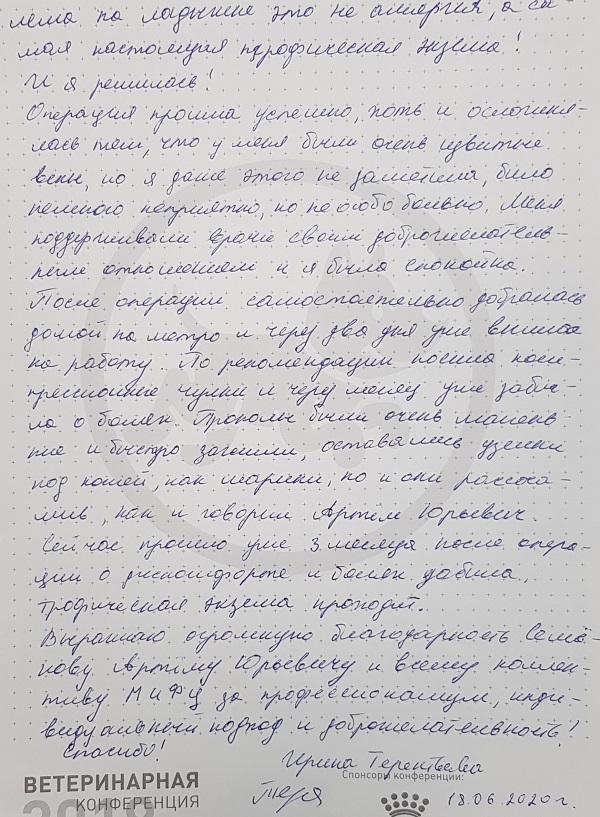 лема на лодыжке это не аллергия, а са
мая настоящая трофическая экзема!
И я решилась!
Операция прошла успешно, хоть и осложня-
лась тем, что у меня были очень извитые
вены, но я даже этого не заметила, было
немного неприятно, но не особо больно. Меня
поддерживали врачи своим доброжелатель-
ным отношением и я была спокойна.
После операции самостоятельно добралась
домой на метро и через два дня уже вышла
на работу. По рекомендации носила ком-
прессионные чулки и через месяц уже забы-
ла о болях. Проколы были очень малень
кие и быстро зажили, оставались узелки
под кожей, как шарики, но и они рассоса-
лись, как и говорил Артём Юрьевич.
Сейчас прошло уже 3 месяца после опера-
ции о дискомфорте и болях забыла,
трофическая экзема проходит.
Выражаю огромную благодарность Семё-
нову Артёму Юрьевичу и всему коллек-
тиву МИФЦ за профессионализм, инди-
видуальный подход и доброжелательность!
Спасибо!
Ирина Терентьева
Спонсоры конференции:
ВЕТЕРИНАРНАЯ
КОНФЕРЕНЦИЯ
18.06.2020 г.